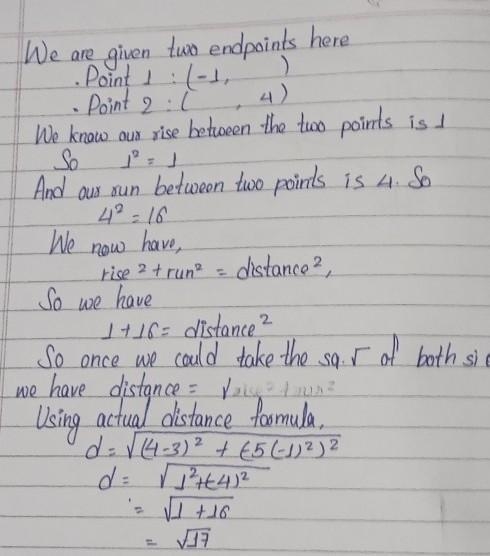 We are given two endpoints here
. Point 1 : (-1, )
. Point 2 : ( , 4)
We know our rise between the two points is 1
So 1² = 1
And our run between two points is 4. So
4² = 16
We now have,
rise² + run² = distance²,
So we have
1 + 16 = distance²
So once we could take the sq. √ of both si
we have distance = √rise² + run²
Using actual distance formula,
d = √(4-3)² + (-5(-1)²)²
d = √1²+(-4)²
= √1 + 16
= √17